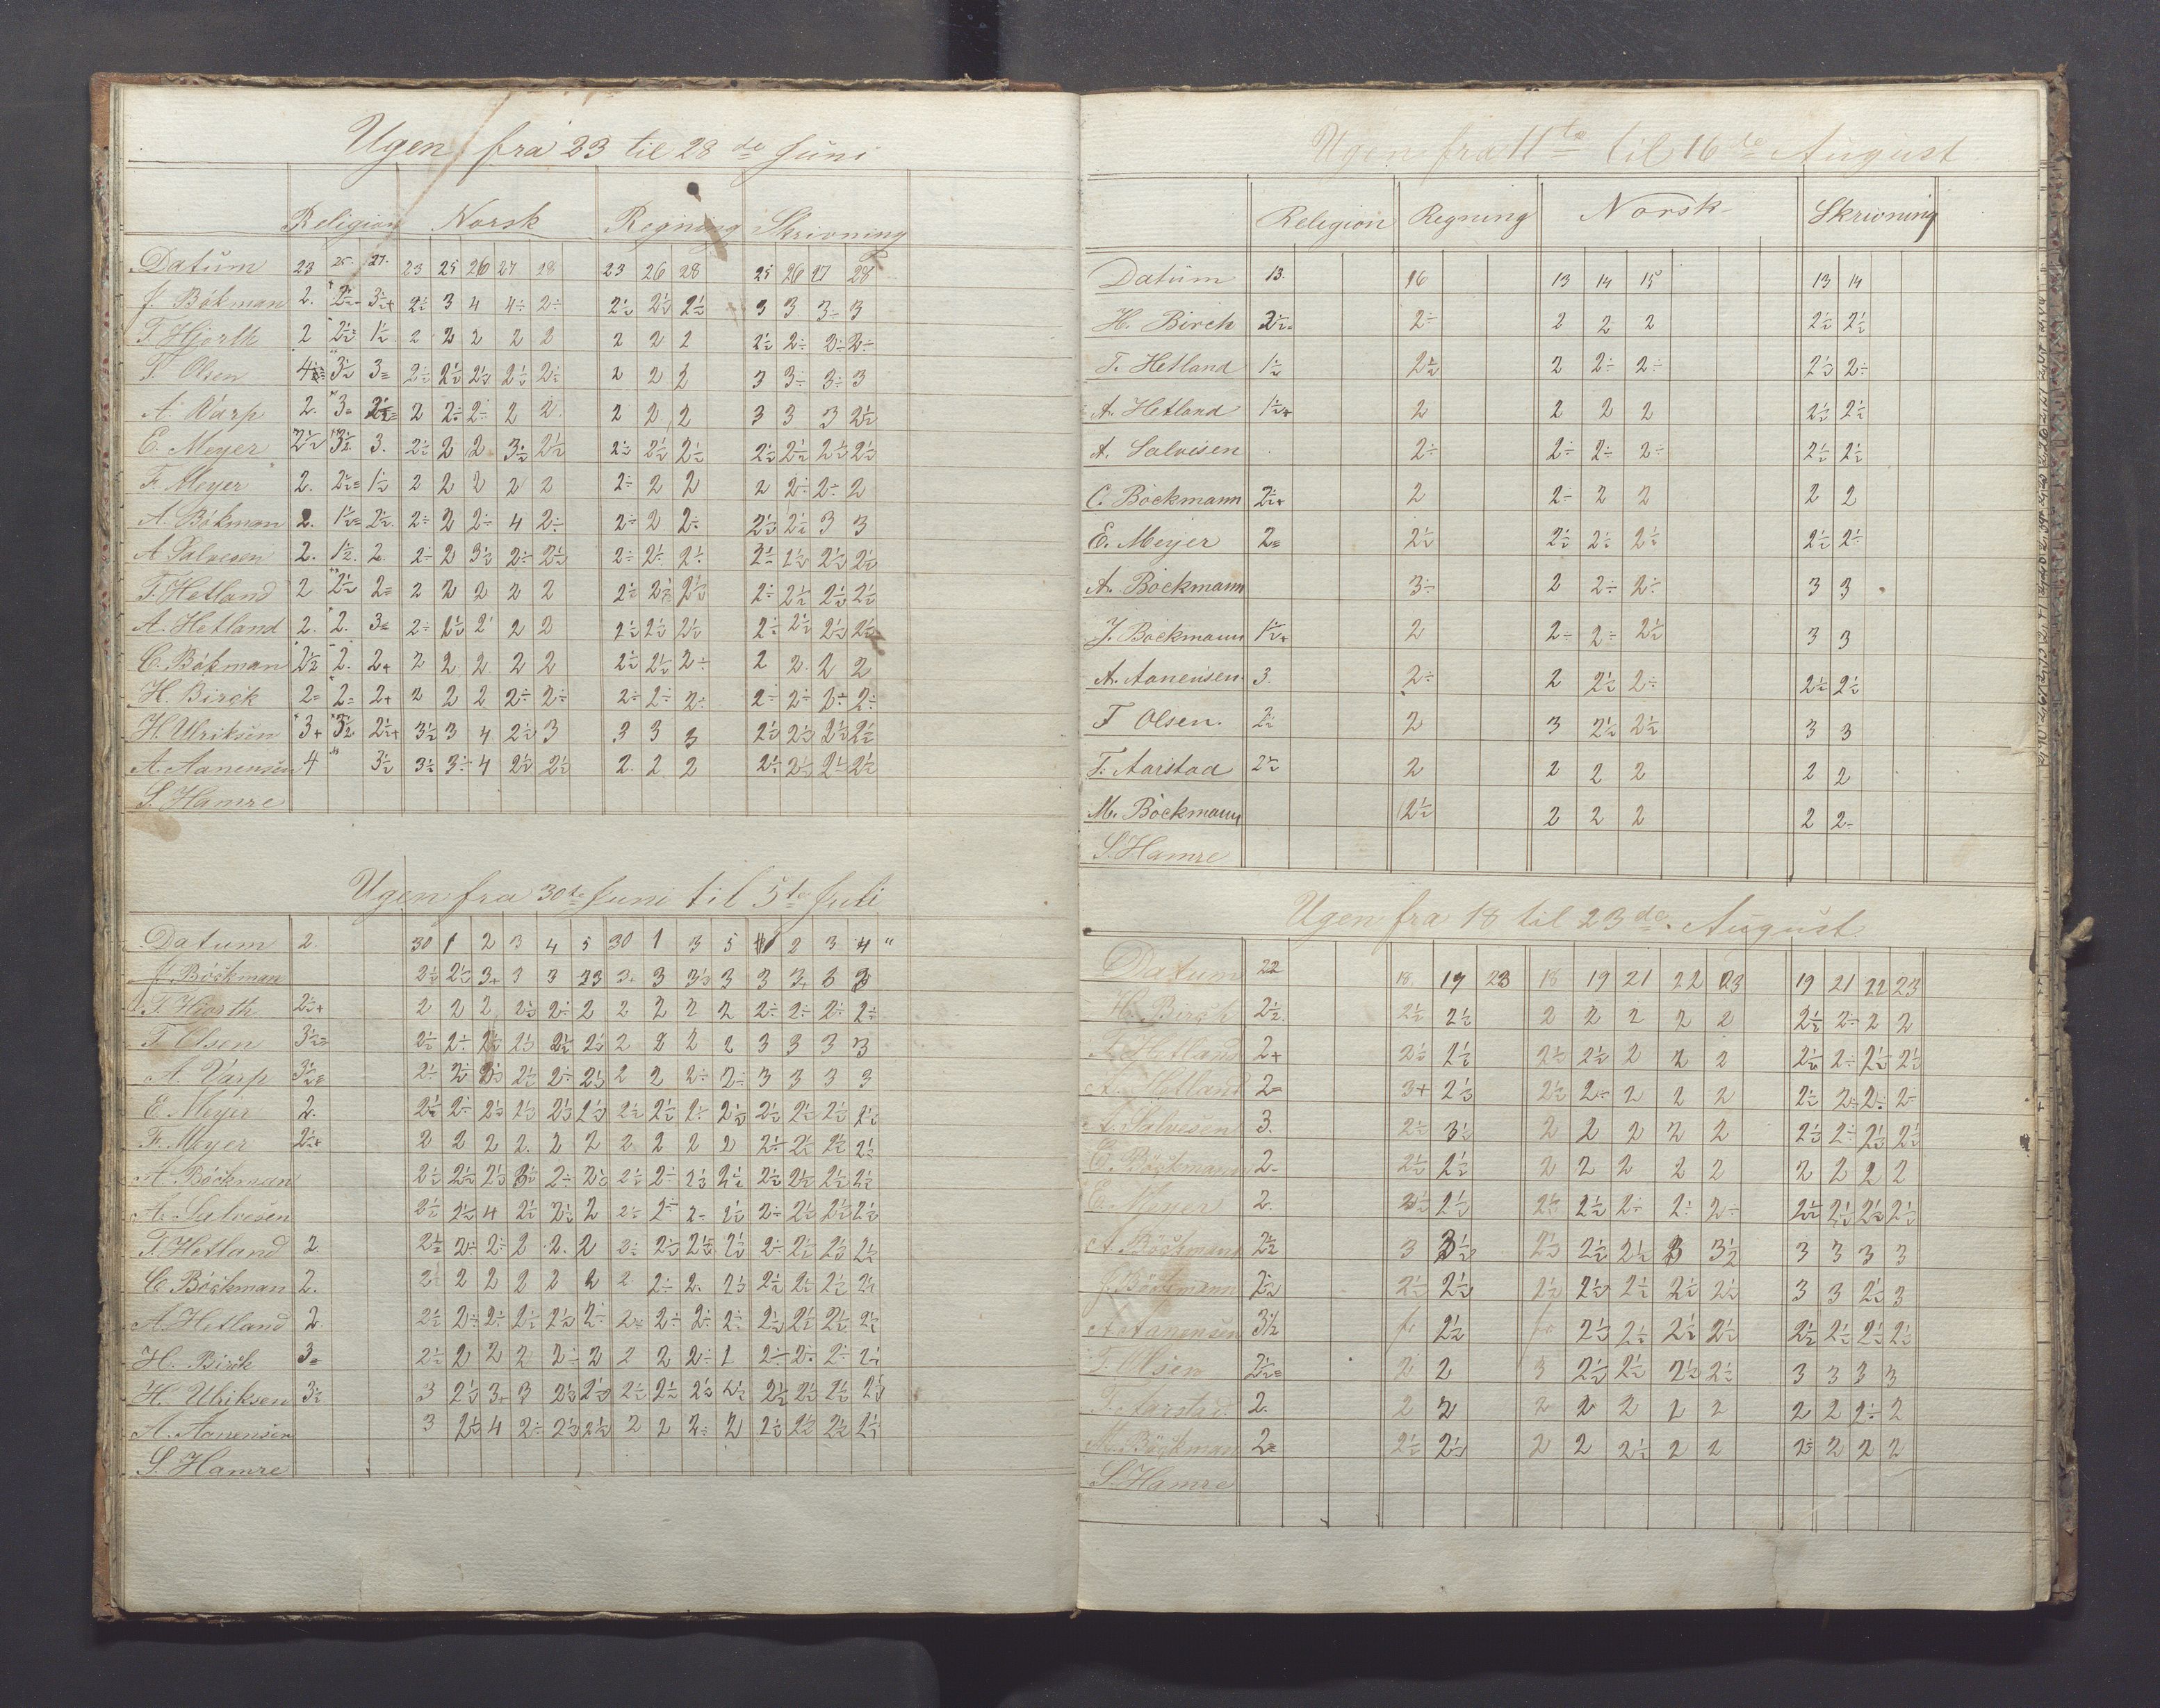 Ugen fra 23 til 28 de Juni
Religion Norsk Regning Skrivning
Datum 23 25 27 23 25 26 27 28 23 26 28 25 26 27 28
J. Bökman 2. 2½ 3½+ 2½ 3 4 4÷ 2÷ 2½ 2½ 2½ 3 3 3÷ 3
T. Hjorth 2 2½ 1½ 2 2 2 2 2 2 2 2 2½ 2÷ 2÷ 2÷
T. Olsen 3½ 3= 2½ 2½ 2½ 2½ 2½ 2 2 2 3 3÷ 3÷ 3
A. Varp 2. 3= 2½= 2 2÷ 2÷ 2 2 2 2 2 3 3 3 2½
E. Meyer 2½ 3½ 3. 2½ 2 2 3½ 2½ 2½ 2½ 2½ 2½ 2½ 2½ 2½
F. Meyer 2. 2½= 1½ 2 2 2 2 2 2÷ 2 2 2 2÷ 2÷ 2
A. Bökman 2. 1½= 2½ 2÷ 2 2÷ 4 2÷ 2÷ 2 2÷ 2½ 2½ 3 3
A Salvesen 2. 1½ 2 2÷ 2 3½ 2÷ 2½ 2÷ 2÷ 2÷ 2½ 2½
T. Hetland 2 2½ 2= 2 2 2 2 2 2½ 2½ 2½ 2÷ 2½ 2½ 2½
A. Hetland 2. 2. 3= 2÷ 2½ 2 2 2 2½ 2½ 2½ 2÷ 2½ 2½ 2½
C. Bökman 2½ 2. 2+ 2 2 2 2 2 2½ 2½ 2÷ 2 2 2 2
H Birck 2= 2= 2+ 2 2 2 2÷ 2÷ 2÷ 2÷ 2÷ 2÷ 2÷ 2÷ 2÷
H. Ulriksen 3+ 3½ 2½+ 3½ 3 4 2½ 3 3 3 3 2½ 2½ 2½ 2½
A. Aanensen 4 " 3½ 3½ 3÷ 4 2½ 2½ 2 2 2 2½ 2½ 2½ 2½
S. Hamre
Ugen fra 30te Juni til 5te Juli
Datum 2. 30 1 2 3 4 5 30 1 3 5 1 2 3 4 "
J. Böckman 2½ 2½ 3+ 3 3 3+ 3 3½ 3 3 3+ 3 3
T. Hiorth 2½+ 2 2 2 2½ 2÷ 2 2 2 2 2 2÷ 2÷ 2÷ 2÷
T. Olsen 3½= 2½ 2÷ 2½ 2½ 2½ 2½ 2 2 2 2 3 3 3 3
A. Varp 3½= 2÷ 2÷ 2½ 2½ 2÷ 2½ 2 2 2÷ 2÷ 3 3 3 3
E. Meyer 2. 2½ 2÷ 2½ 2½ 2½ 2½ 2½ 2½ 2÷ 2½ 2½ 2½ 2½ 2½
F. Meyer 2½+ 2 2 2 2. 2 2 2 2 2 2 2½ 2½ 2½ 2½
A Böckman 2½ 2½ 2½ 3½ 2÷ 2½ 2½ 2÷ 2½ 2½ 2½ 2½ 2½ 2½
A. Salvesen 2½ 2½ 4 2½ 2½ 2 2½ 2÷ 2÷ 2½ 2÷ 2½ 2½ 2½
T. Hetland 2. 2½ 2÷ 2÷ 2 2. 2 2÷ 2½ 2½ 2½ 2÷ 2½ 2½ 2½
C Böckman 2. 2½ 2 2 2 2 2 2 2÷ 2. 2½ 2½ 2½ 2½ 2½
A. Hetland 2. 2½ 2÷ 2÷ 2½ 2½ 2÷ 2÷ 2÷ 2÷ 2÷ 2½ 2½ 2½ 2½
H. Birck 3= 2½ 2 2 2 2÷ 2 2 2 2÷ 1 2÷ 2÷ 2÷ 2½
H. Ulriksen 3½ 3 2½ 3+ 3 2½ 2½ 2½ 2½ 2½ 2½ 2½ 2½ 2½ 2½
A. Aanensen 3 2½ 4 2÷ 2½ 2½ 2 2 2÷ 2 2½ 2½ 2½ 2½
S. Hamre
Ugen fra 11te til 16de August
Religion Regning Norsk Skrivning
Datum 13. 16 13 14 15 13 14
H. Birch 2½= 2÷ 2 2 2 2½ 2½
T. Hetland 1½ 2½ 2 2÷ 2÷ 2½ 2÷
A. Hetland 1½+ 2 2 2 2 2½ 2½
A. Salvesen 2÷ 2÷ 2÷ 2÷ 2½ 2½
C. Böckmann 2½+ 2 2÷ 2 2 2 2
E. Meyer 2= 2½ 2½ 2½ 2½ 2½ 2÷
A. Böckmann 3÷ 2 2÷ 2÷ 3 3
J. Böckmann 1½+ 2 2÷ 2÷ 2½ 3 3
A. Aanensen 3. 2÷ 2 2½ 2÷ 2½ 2½
T Olsen. 2½ 2 3 2½ 2½ 3 3
T. Aarstad 2½ 2 2 2 2 2 2
M. Böckmann 2½ 2 2 2 2 2÷
S. Hamre
Ugen fra 18 til 23de August
Datum 22 18. 19 23 18 19 21 22 23 19 21 22 23
H. Birck 2½ 2½ 2½ 2 2 2 2 2 2½ 2÷ 2 2
T. Hetland 2+ 2½ 2½ 2½ 2½ 2 2 2 2½ 2÷ 2½ 2½
A. Hetland 2= 3+ 2½ 2½ 2÷ 2 2 2 2½ 2÷ 2÷ 2÷
A. Salvesen 3. 2½ 3½ 2 2 2 2 2 2½ 2÷ 2½ 2½
C. Böckmann 2- 2½ 2½ 2 2 2 2 2 2 2 2 2
E. Meyer 2. 2½ 2½ 2½ 2÷ 2÷ 2÷ 2½ 2½ 2½ 2½
A Böckmann 2½ 3 3½ 2½ 2½ 2½ 3 3½ 3 3 3 3
J. Böckmann 2½ 2½ 2½ 2½ 2½ 2½ 2½ 2½ 3 3 2½ 3
A. Aanensen 3½ fr 2½ fr 2½ 2½ 2½ 2½ 2½ 2½ 2½ 2½
T. Olsen 2½= 2 2 3 2½ 2½ 2½ 2½ 3 3 3 3
T. Aarstad 2. 2 2 2 2 2 2 2 2 2 2÷ 2
M. Böckman 2= 2½ 2½ 2 2 2½ 2 2 2÷ 2 2 2
S. Hamre